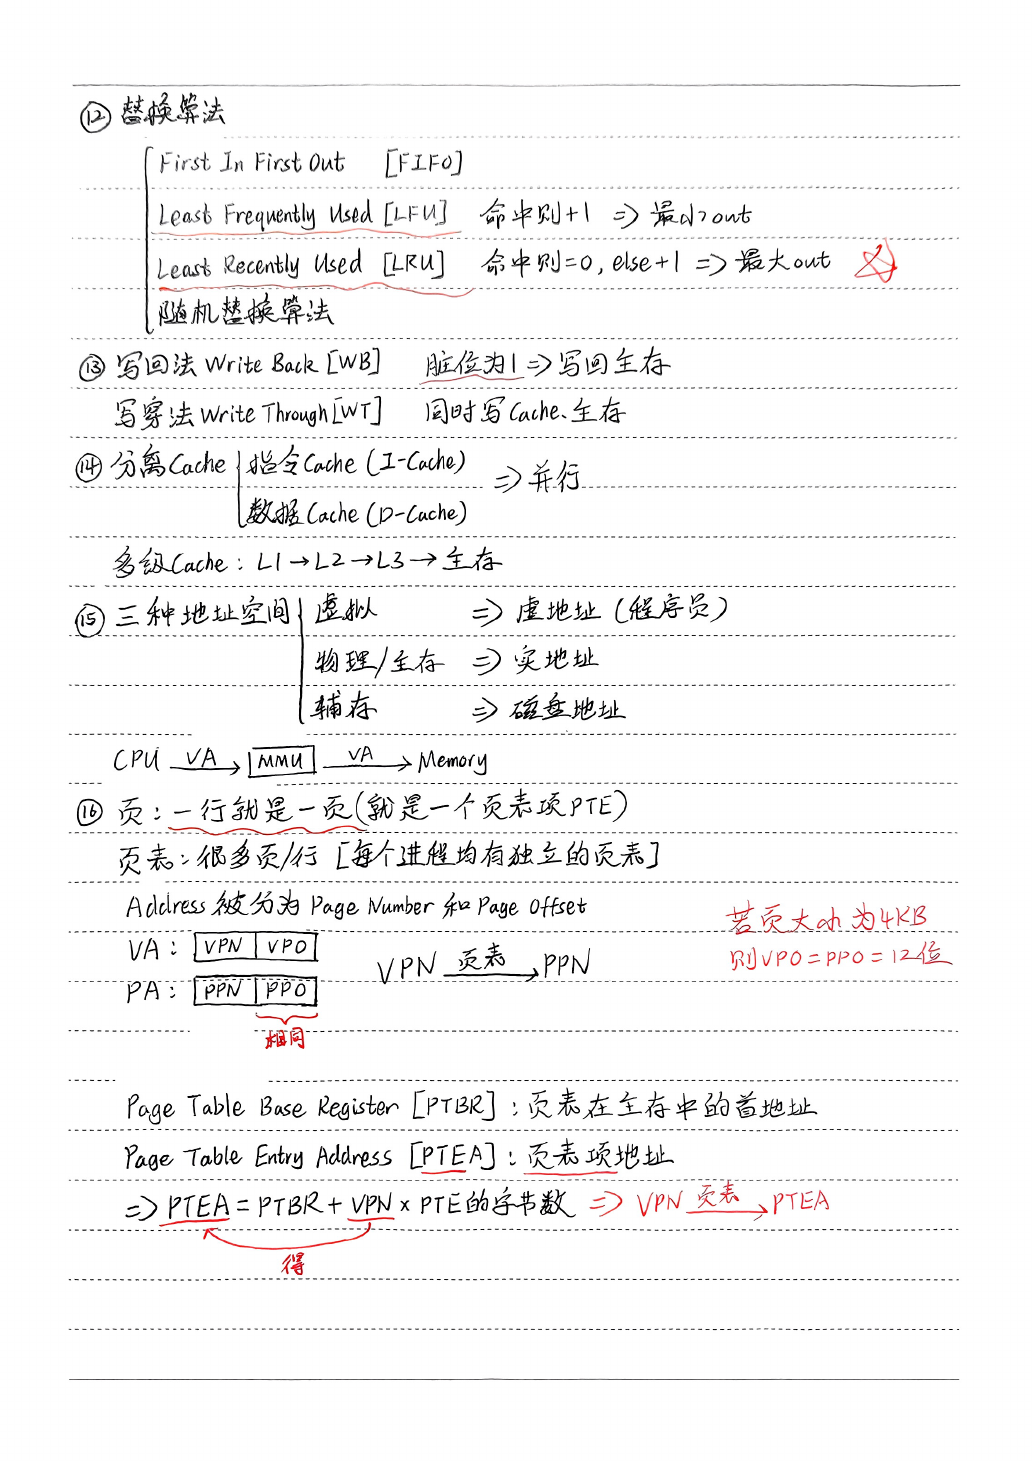 ⑫ 替换算法
First In First Out [FIFO]
Least Frequently Used [LFU] 命中则+1 => 最小out
Least Recently Used [LRU] 命中则=0, else+1 => 最大out
随机替换算法
⑬ 写回法 Write Back [WB] 脏位为1 => 写回主存
写穿法 Write Through [WT] 同时写Cache、主存
⑭ 分离Cache 指令Cache (I-Cache) => 并行
数据Cache (D-Cache)
多级Cache: L1→L2→L3→主存
⑮ 三种地址空间 虚拟 => 虚地址 (程序员)
物理/主存 => 实地址
辅存 => 磁盘地址
CPU VA→ MMU VA→ Memory
⑯ 页: 一行就是一页(就是一个页表项PTE)
页表: 很多页/行 [每个进程均有独立的页表]
Address 被分为 Page Number 和 Page Offset
若页大小为4KB
VA: VPN VPO
则VPO=PPO=12位
VPN 页表→ PPN
PA: PPN PPO
相同
Page Table Base Register [PTBR]: 页表在主存中的首地址
Page Table Entry Address [PTEA]: 页表项地址
=> PTEA = PTBR + VPN × PTE的字节数 => VPN 页表→ PTEA
得